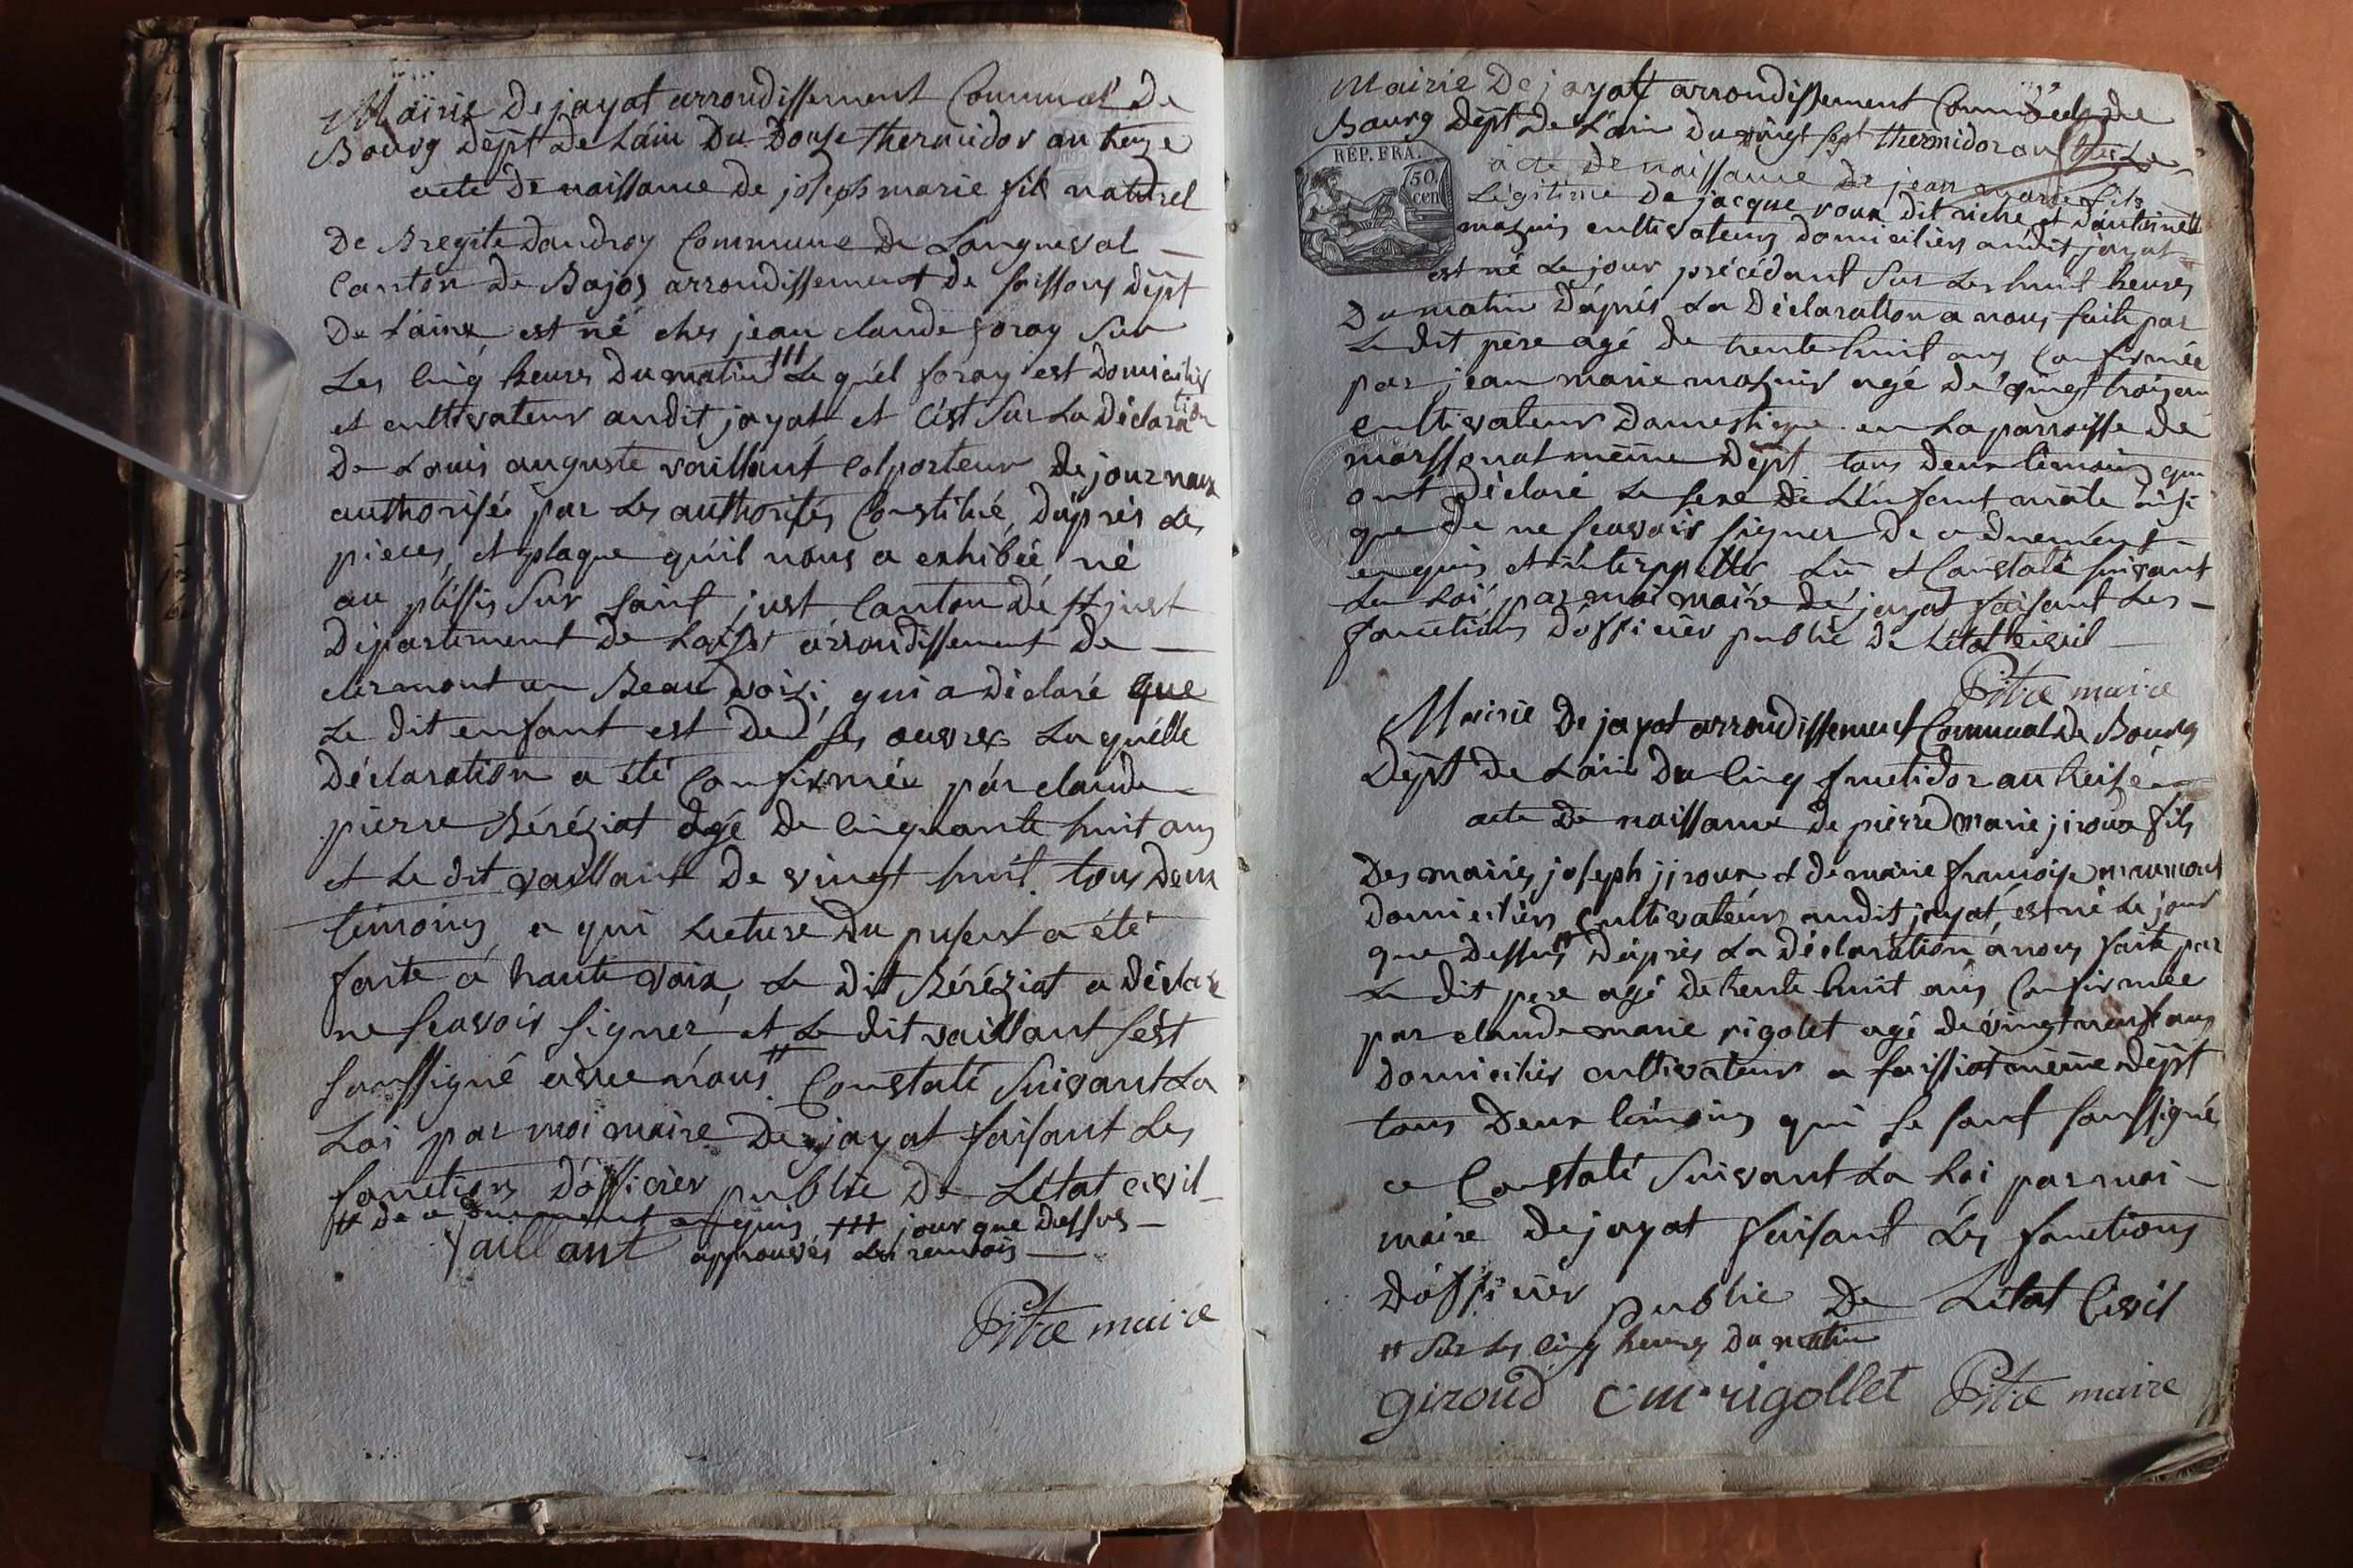 Mairie De jayat arrondissement Communal De
Bourg Dept De Lain Du Douze thermidor an treize
acte De naissance de joseph marie fils naturel
De Bregite Daudroy Commune De Longueval
Canton De Bajos arrondissement De soissons Dept
De L'aine est né ches jean claude foray Sur
Les cinq heures Du matin ### Le quel foray est Domicilier
et cultivateur audit jayat et C'est Sur La Déclaration
De Louis auguste vaillant Colporteur De journaux
authorisé par Les authorités Constitué, D'après Les
pieces, et plaque qu'il nous a exhibée né
au pléssis Sur saint just Canton De St just
Département De Loise arrondissement De
clermont en Beauvoisi, qui a Déclaré que
Le dit enfant est De ses œuvres Laquélle
Déclaration a été Confirmée par claude
pierre Béréziat agé De Cinquante huit ans
et Le dit vaillant De vingt huit. tous Deux
témoins, a qui Lecture Du présent a été
faite a haute voix, Le Dit Béréziat a Déclaré
ne scavoir signer, et Le dit vaillant s'est
soussigné avec nous ## Constaté Suivant La
Loi par moi maire De jayat faisant Les
fonctions D'officier public De L'état civil
## De ce Duement enquis ### jour que Dessus
Vaillant approuvés Les renvois
Pitre maire
Mairie De jayat arrondissement Communal De
Bourg Dept De L'ain Du vingt sept thermidor an
REP. FRA.
50 cen
acte De naissance De jean marie fils
Légitime De jacque roux dit riche et d'antoinette
mazuir cultivateurs domiciliés audit jayat
est né Le jour précédant Sur Les huit heures
Du matin D'après La Déclaration a nous faite par
Le dit pere agé De trente huit ans Confirmée
par jean marie mazuir agé De vingt trois ans
cultivateur Domestique en La parroisse De
marssonat même Dept tous deux témoins qui
ont Déclaré Le sexe De L'enfant mâle ainsi
que De ne scavoir signer De ce Duement
enquis et interppellés Lu et Constaté suivant
La Loi par moi maire De jayat faisant Les
fonctions D'officier public De L'état civil
Pitre maire
Mairie De jayat arrondissement Communal De Bourg
Dept De L'ain Du Cinq fructidor an treize
acte De naissance de pierre marie jiroux fils
Des mariés joseph jiroux et de marie francoise
domiciliers Cultivateurs audit jayat, est né Le jour
que Dessus ## D'après La Déclaration a nous faite par
Le dit pere agé De trente huit ans Confirmée
par claude marie rigolet agé De vingt neuf ans
domicilier cultivateur a foissiat même Dept
tous Deux témoins qui se sont soussigné
ce Constaté Suivant La Loi par moi
maire De jayat faisant Les fonctions
D'officier public De L'état Civil
## Sur Les cinq heures Du matin
giroud c m rigollet Pitre maire